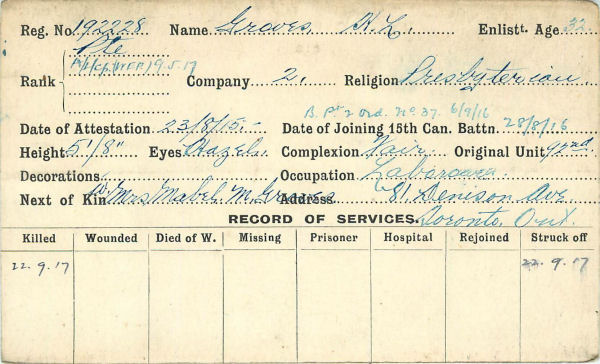 Reg. No. 192228 Name Graves H. L. Enlistt. Age 32
Pte
Rank A/L/Cpl (W.E.P.) 19.5.17 Company 2. Religion Presbyterian
B. Pt 2 Ord. No. 37. 6/9/16
Date of Attestation 23/8/15.- Date of Joining 15th Can. Battn. 28/8/16
Height 5'/8" Eyes Hazel. Complexion Fair Original Unit 92nd
Decorations Occupation
Next of Kin W. Mrs Mabel M. Graves Address 81 Denison Ave
RECORD OF SERVICES. Toronto, Ont
Killed Wounded Died of W. Missing Prisoner Hospital Rejoined Struck off
22.9.17 22.9.17